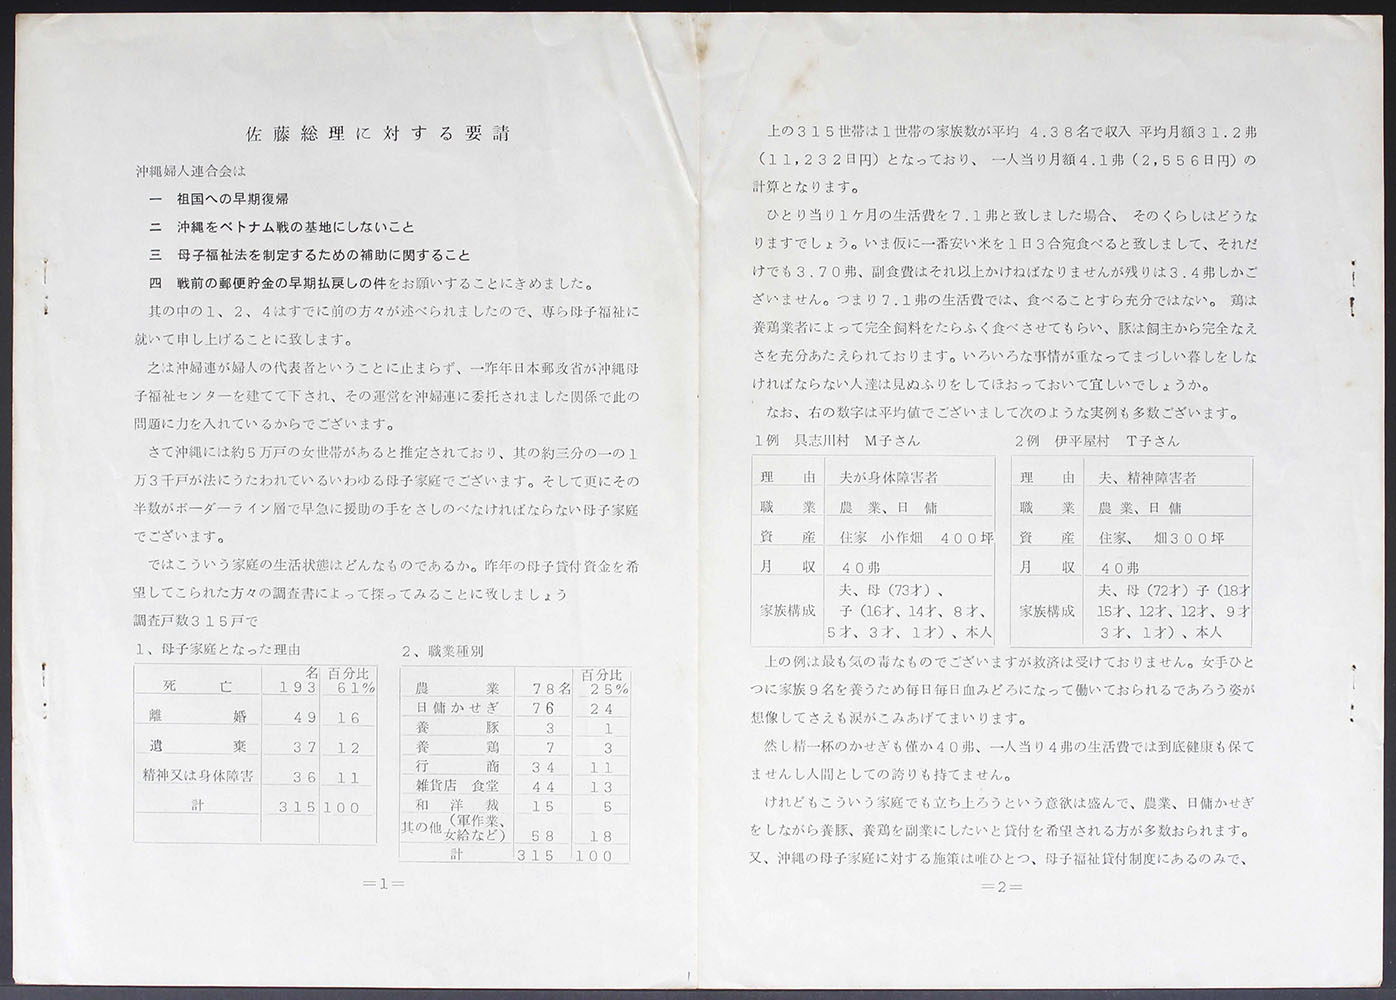 佐藤総理に対する要請
沖縄婦人連合会は
一　祖国への早期復帰
二　沖縄をベトナム戦の基地にしないこと
三　母子福祉法を制定するための補助に関すること
四　戦前の郵便貯金の早期払戻しの件をお願いすることにきめました。
其の中の1、2、4はすでに前の方々が述べられましたので、専ら母子福祉に
就いて申し上げることに致します。
之は沖婦連が婦人の代表者ということに止まらず、一昨年日本郵政省が沖縄母
子福祉センターを建てて下され、その運営を沖婦連に委托されました関係で此の
問題に力を入れているからでございます。
さて沖縄には約5万戸の女世帯があると推定されており、其の約三分の一の1
万3千戸が法にうたわれているいわゆる母子家庭でございます。そして更にその
半数がボーダーライン層で早急に援助の手をさしのべなければならない母子家庭
でございます。
ではこういう家庭の生活状態はどんなものであるか。昨年の母子貸付資金を希
望してこられた方々の調査書によって探ってみることに致しましょう
調査戸数315戸で
1、母子家庭となった理由
名　百分比
死　亡　193　61%
離　婚　49　16
遺　棄　37　12
精神又は身体障害　36　11
計　315　100
2、職業種別
百分比
農　業　78名　25%
日傭かせぎ　76　24
養　豚　3　1
養　鶏　7　3
行　商　34　11
雑貨店　食堂　44　13
和　洋　裁　15　5
其の他（軍作業、女給など）　58　18
計　315　100
=1=
上の315世帯は1世帯の家族数が平均　4.38名で収入　平均月額31.2弗
（11,232日円）となっており、一人当り月額4.1弗（2,556日円）の
計算となります。
ひとり当り1ケ月の生活費を7.1弗と致しました場合、そのくらしはどうな
りますでしょう。いま仮に一番安い米を1日3合宛食べると致しまして、それだ
けでも3.70弗、副食費はそれ以上かけねばなりませんが残りは3.4弗しかご
ざいません。つまり7.1弗の生活費では、食べることすら充分ではない。鶏は
養鶏業者によって完全飼料をたらふく食べさせてもらい、豚は飼主から完全なえ
さを充分あたえられております。いろいろな事情が重なってまづしい暮しをしな
ければならない人達は見ぬふりをしてほおっておいて宜しいでしょうか。
なお、右の数字は平均値でございまして次のような実例も多数ございます。
1例　具志川村　M子さん
理　由　夫が身体障害者
職　業　農業、日傭
資　産　住家　小作畑　400坪
月　収　40弗
家族構成　夫、母（73才）、
子（16才、14才、8才、
5才、3才、1才）、本人
2例　伊平屋村　T子さん
理　由　夫、精神障害者
職　業　農業、日傭
資　産　住家、　畑300坪
月　収　40弗
家族構成　夫、母（72才）子（18才
15才、12才、12才、9才
3才、1才）、本人
上の例は最も気の毒なものでございますが救済は受けておりません。女手ひと
つに家族9名を養うため毎日毎日血みどろになって働いておられるであろう姿が
想像してさえも涙がこみあげてまいります。
然し精一杯のかせぎも僅か40弗、一人当り4弗の生活費では到底健康も保て
ませんし人間としての誇りも持てません。
けれどもこういう家庭でも立ち上ろうという意欲は盛んで、農業、日傭かせぎ
をしながら養豚、養鶏を副業にしたいと貸付を希望される方が多数おられます。
又、沖縄の母子家庭に対する施策は唯ひとつ、母子福祉貸付制度にあるのみで、
=2=